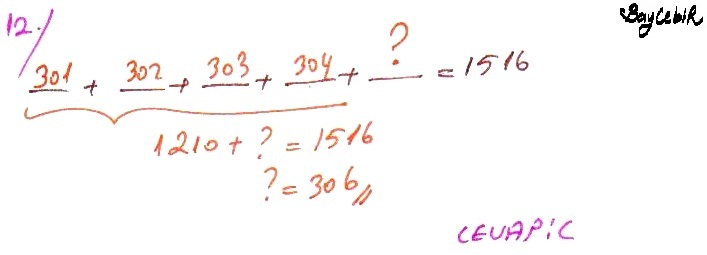 BayCebiR
12./
301 + 302 + 303 + 304 + ? = 1516
1210 + ? = 1516
? = 306//
CEVAP:C